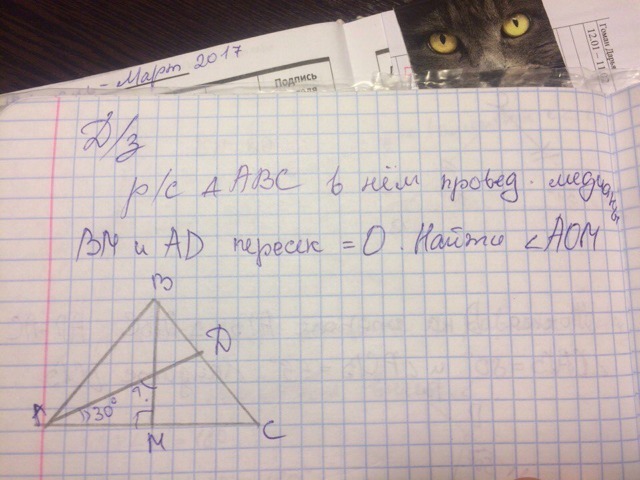 Март 2017
Подпись
Гоман Дарья
12.01
Д/з
р/с △ ABC в нём провед. медианы
BM и AD пересек = O. Найти ∠AOM
B
D
?
A
30°
M
C